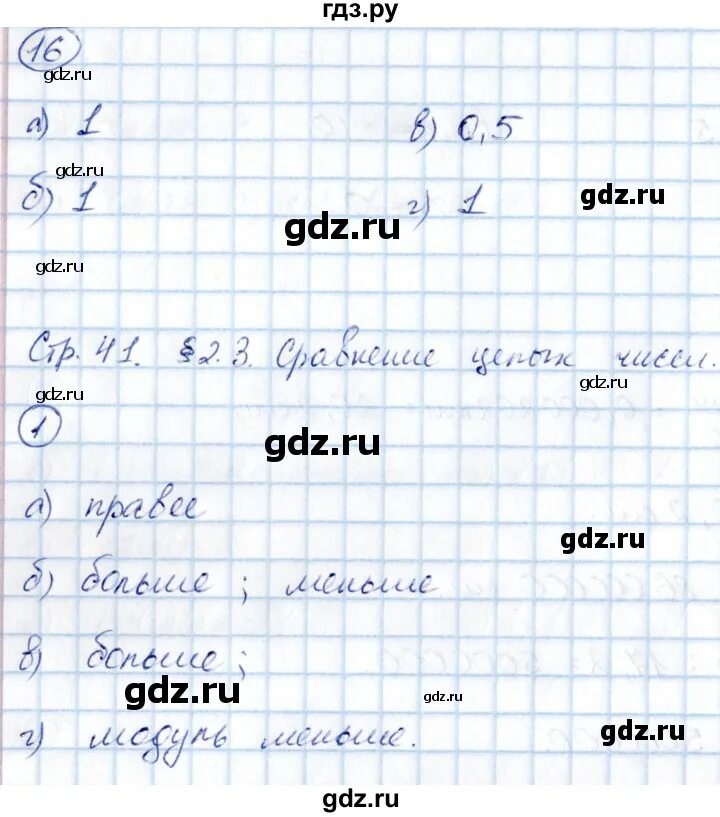 гдз.ру
16
gdz.ru
а) 1 в) 0,5
gdz.ru
б) 1 г) 1
gdz.ru
gdz.ru
gdz.ru
Стр. 41. § 2.3. Сравнение целых чисел.
gdz.ru
gdz.ru
1
gdz.ru
а) правее
gdz.ru
б) больше ; меньше
в) больше ;
gdz.ru
gdz.ru
gdz.ru
г) модуль меньше.
gdz.ru